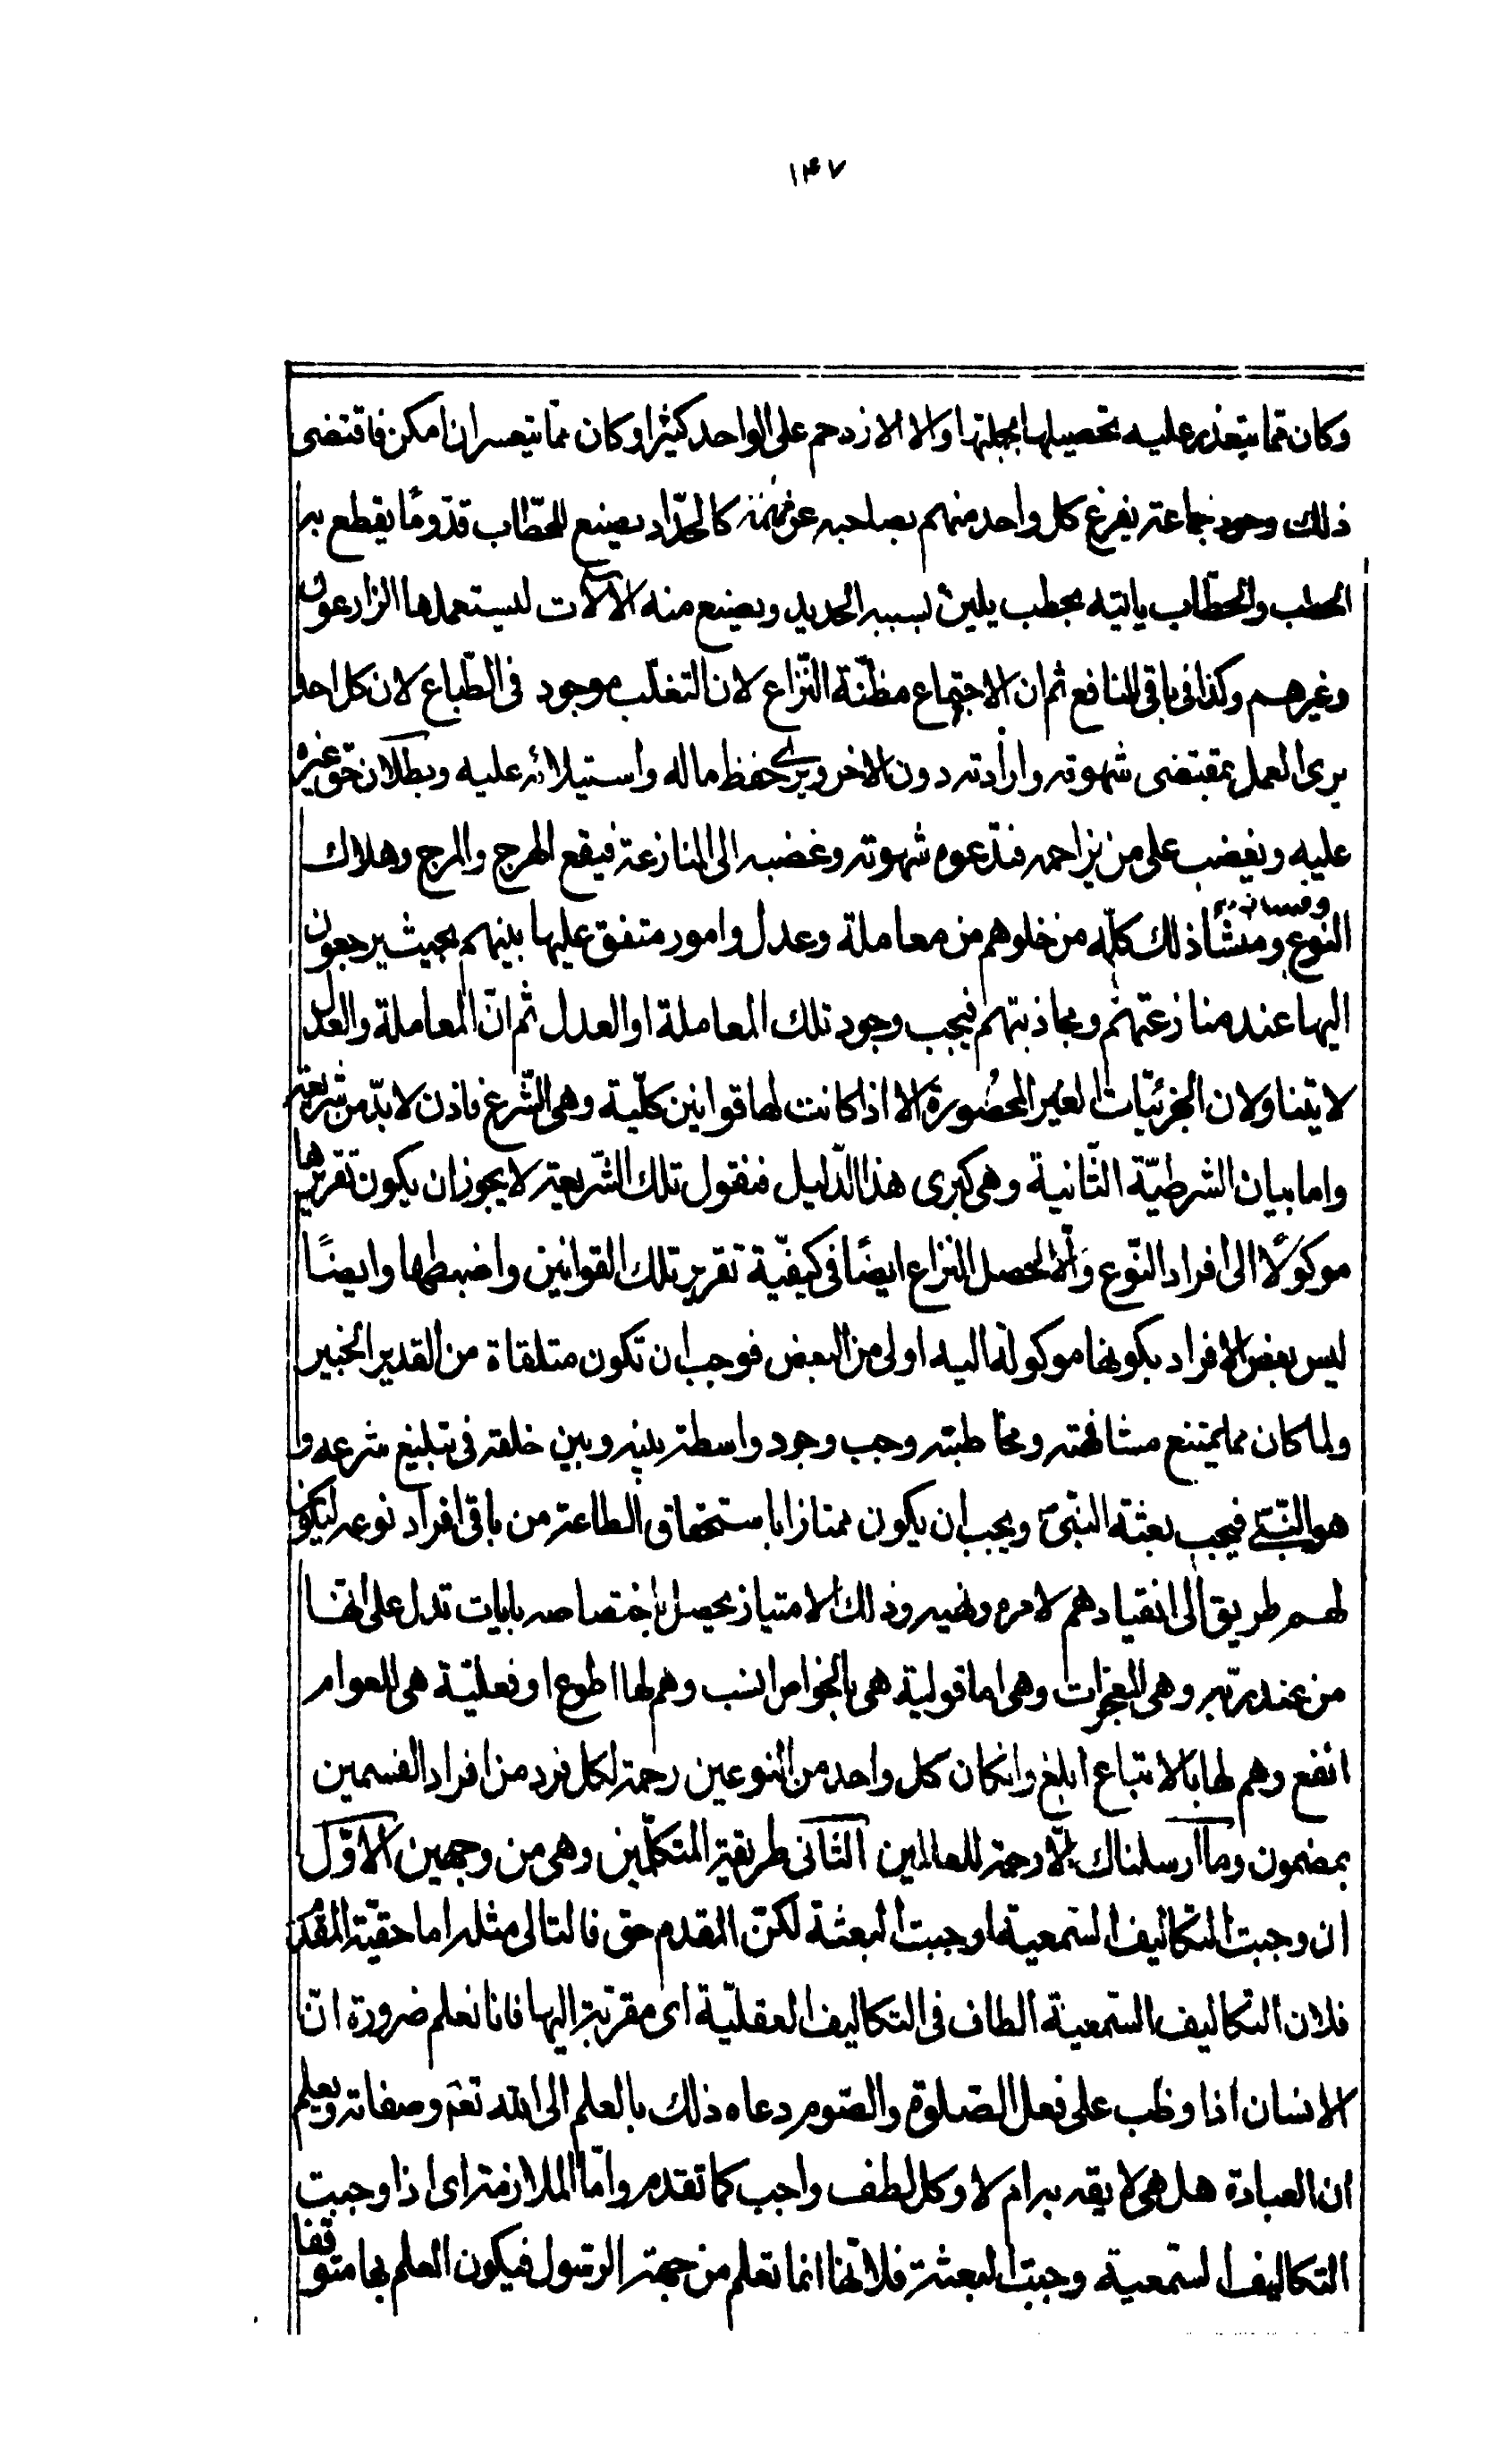 ١٤٧
وكان مما يتعذر عليه تحصيلها بجملتها والا لازدحم على الواحد كثيرا وكان مما يتعسر ان امكن فاقتضى
ذلك وجود جماعة يفرغ كل واحد منهم بصاحبه عن كالحدّاد يصنع للحطّاب قدّومًا يقطع به
الحطب والحطّاب ياتيه بحطب يلين بسببه الحديد ويصنع منه الآلات ليستعملها الزارعون
وغيرهم وكذا فى باقى المنافع ثم ان الاجتماع مظنّة النّزاع لان التغلّب موجود فى الطّباع لان كل احد
يرى العمل بمقتضى شهوته وارادته دون الاخر ويرى حفظ ماله واستيلائه عليه وبطلان حق غيره
عليه ويغضب على من يزاحمه فتدعوه شهوته وغضبه الى المنازعة فيقع الهرج والمرج وهلاك
النوع وفساده ومنشأ ذلك كلّه من خلوهم من معاملة وعدل وامور متفق عليها بينهم بحيث يرجعون
اليها عند منازعتهم ومجاذبتهم فيجب وجود تلك المعاملة او العدل ثم انّ المعاملة والعدل
لا يتناولان الجزئيّات الغير المحصورة الا اذا كانت لها قوانين كلّية وهى الشّرع فاذن لابدّ من شريعة
واما بيان الشرطيّة الثّانية وهى كبرى هذا الدّليل فنقول تلك الشّريعة لا يجوز ان يكون تقريرها
موكولًا الى افراد النّوع وَالّا لحصل النزاع ايضًا فى كيفيّة تقرير تلك القوانين واضبطها وايضًا
ليس بعض الافراد بكونها موكولة اليه اولى من البعض فوجب ان تكون متلقاة من القدير الخبير
ولما كان مما يمتنع مشافهته ومخاطبته وجب وجود واسطة بينه وبين خلقه فى تبليغ شرعه و
هو النّبىّ فيجب بعثة النبىّ ويجب ان يكون ممتازا باستحقاق الطاعة من باقى افراد نوعه ليكون
لهم طريق الى انقيادهم لامره ونهيه وذلك الامتياز يحصل باختصاصه بايات تدل على انها
من عند ربّه وهى المعجزات وهى اما قولية هى بالخواص انسب وهم لها اطوع او فعليّة هى للعوام
انفع وهم لها بالاتباع ابلغ وان كان كل واحد من النوعين رحمة لكل فرد من افراد القسمين
بمضمون وما ارسلناك الّا رحمة للعالمين الثانى طريقة المتكلّمين وهى من وجهين الاوّل
ان وجبت التكاليف السّمعية وجبت البعثة لكنّ المقدم حق فالتالى مثله اما حقيّة المقدم
فلان التكاليف السّمعية الطاف فى التكاليف العقليّة اى مقرّبة اليها فانا نعلم ضرورة انّ
الانسان اذا وظب على فعل الصّلوة والصّوم دعاه ذلك بالعلم الى الله تعه وصفاته ويعلم
ان العبادة هل هى لايقه به ام لا وكل لطف واجب كما تقدم وامّا الملازمة اى اذا وجبت
التكاليف السّمعية وجبت البعثة فلانّها انما تعلم من جهة الرّسول فيكون العلم بها متوقفا